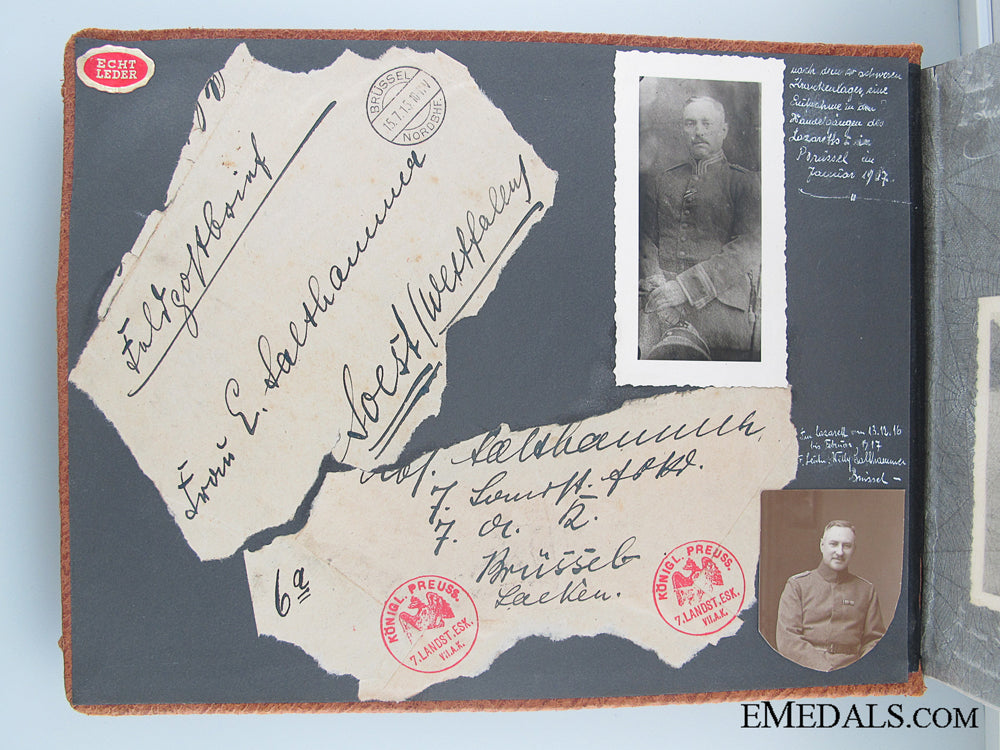 ECHT
LEDER
Feldpostbrief
BRÜSSEL
15.7.15
NORDBHF.
Frau E. Salthammer
Soest/Westfallen
6a
Abs. Salthammer,
7.
7. A. K.
Brüssel
Laeken.
KÖNIGL. PREUSS.
7. LANDST. ESK.
VII. A.K.
KÖNIGL. PREUSS.
7. LANDST. ESK.
VII. A.K.
nach dem schweren
Krankenlager, eine
Aufnahme in den
Wandelgängen des
Lazaretts in
Brüssel im
Januar 1917.
Im Lazarett vom 13.12.16
bis Februar 1917
Willy Salthammer
Brüssel –
EMEDALS.COM